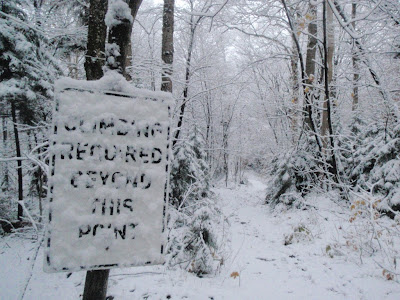 CLIMBING
REQUIRED
BEYOND
THIS
POINT